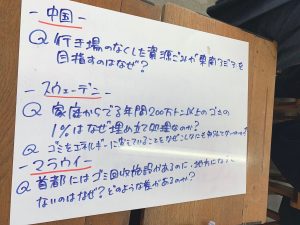 - 中国 -
Q 行き場のなくした資源ごみが東南アジアを
目指すのはなぜ？
- スウェーデン -
Q 家庭からでる年間200万トン以上のゴミの
1%はなぜ埋め立て処理なのか？
Q ゴミをエネルギーに変えていることをなぜ
- マラウイー -
Q 首都にはゴミ回収施設があるのに、地方に
ないのはなぜ？どのような差があるのか？